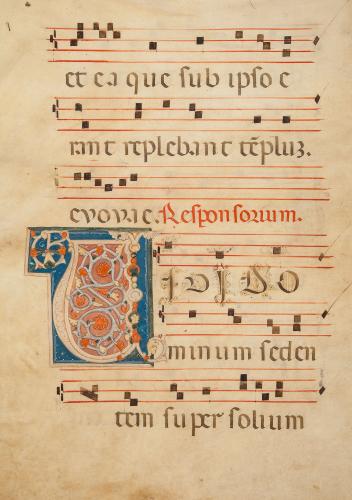 et ea que sub ipso e
rant replebant tẽpluʒ.
evovae. Responsorium.
VIDI DO
minum seden
tem super solium